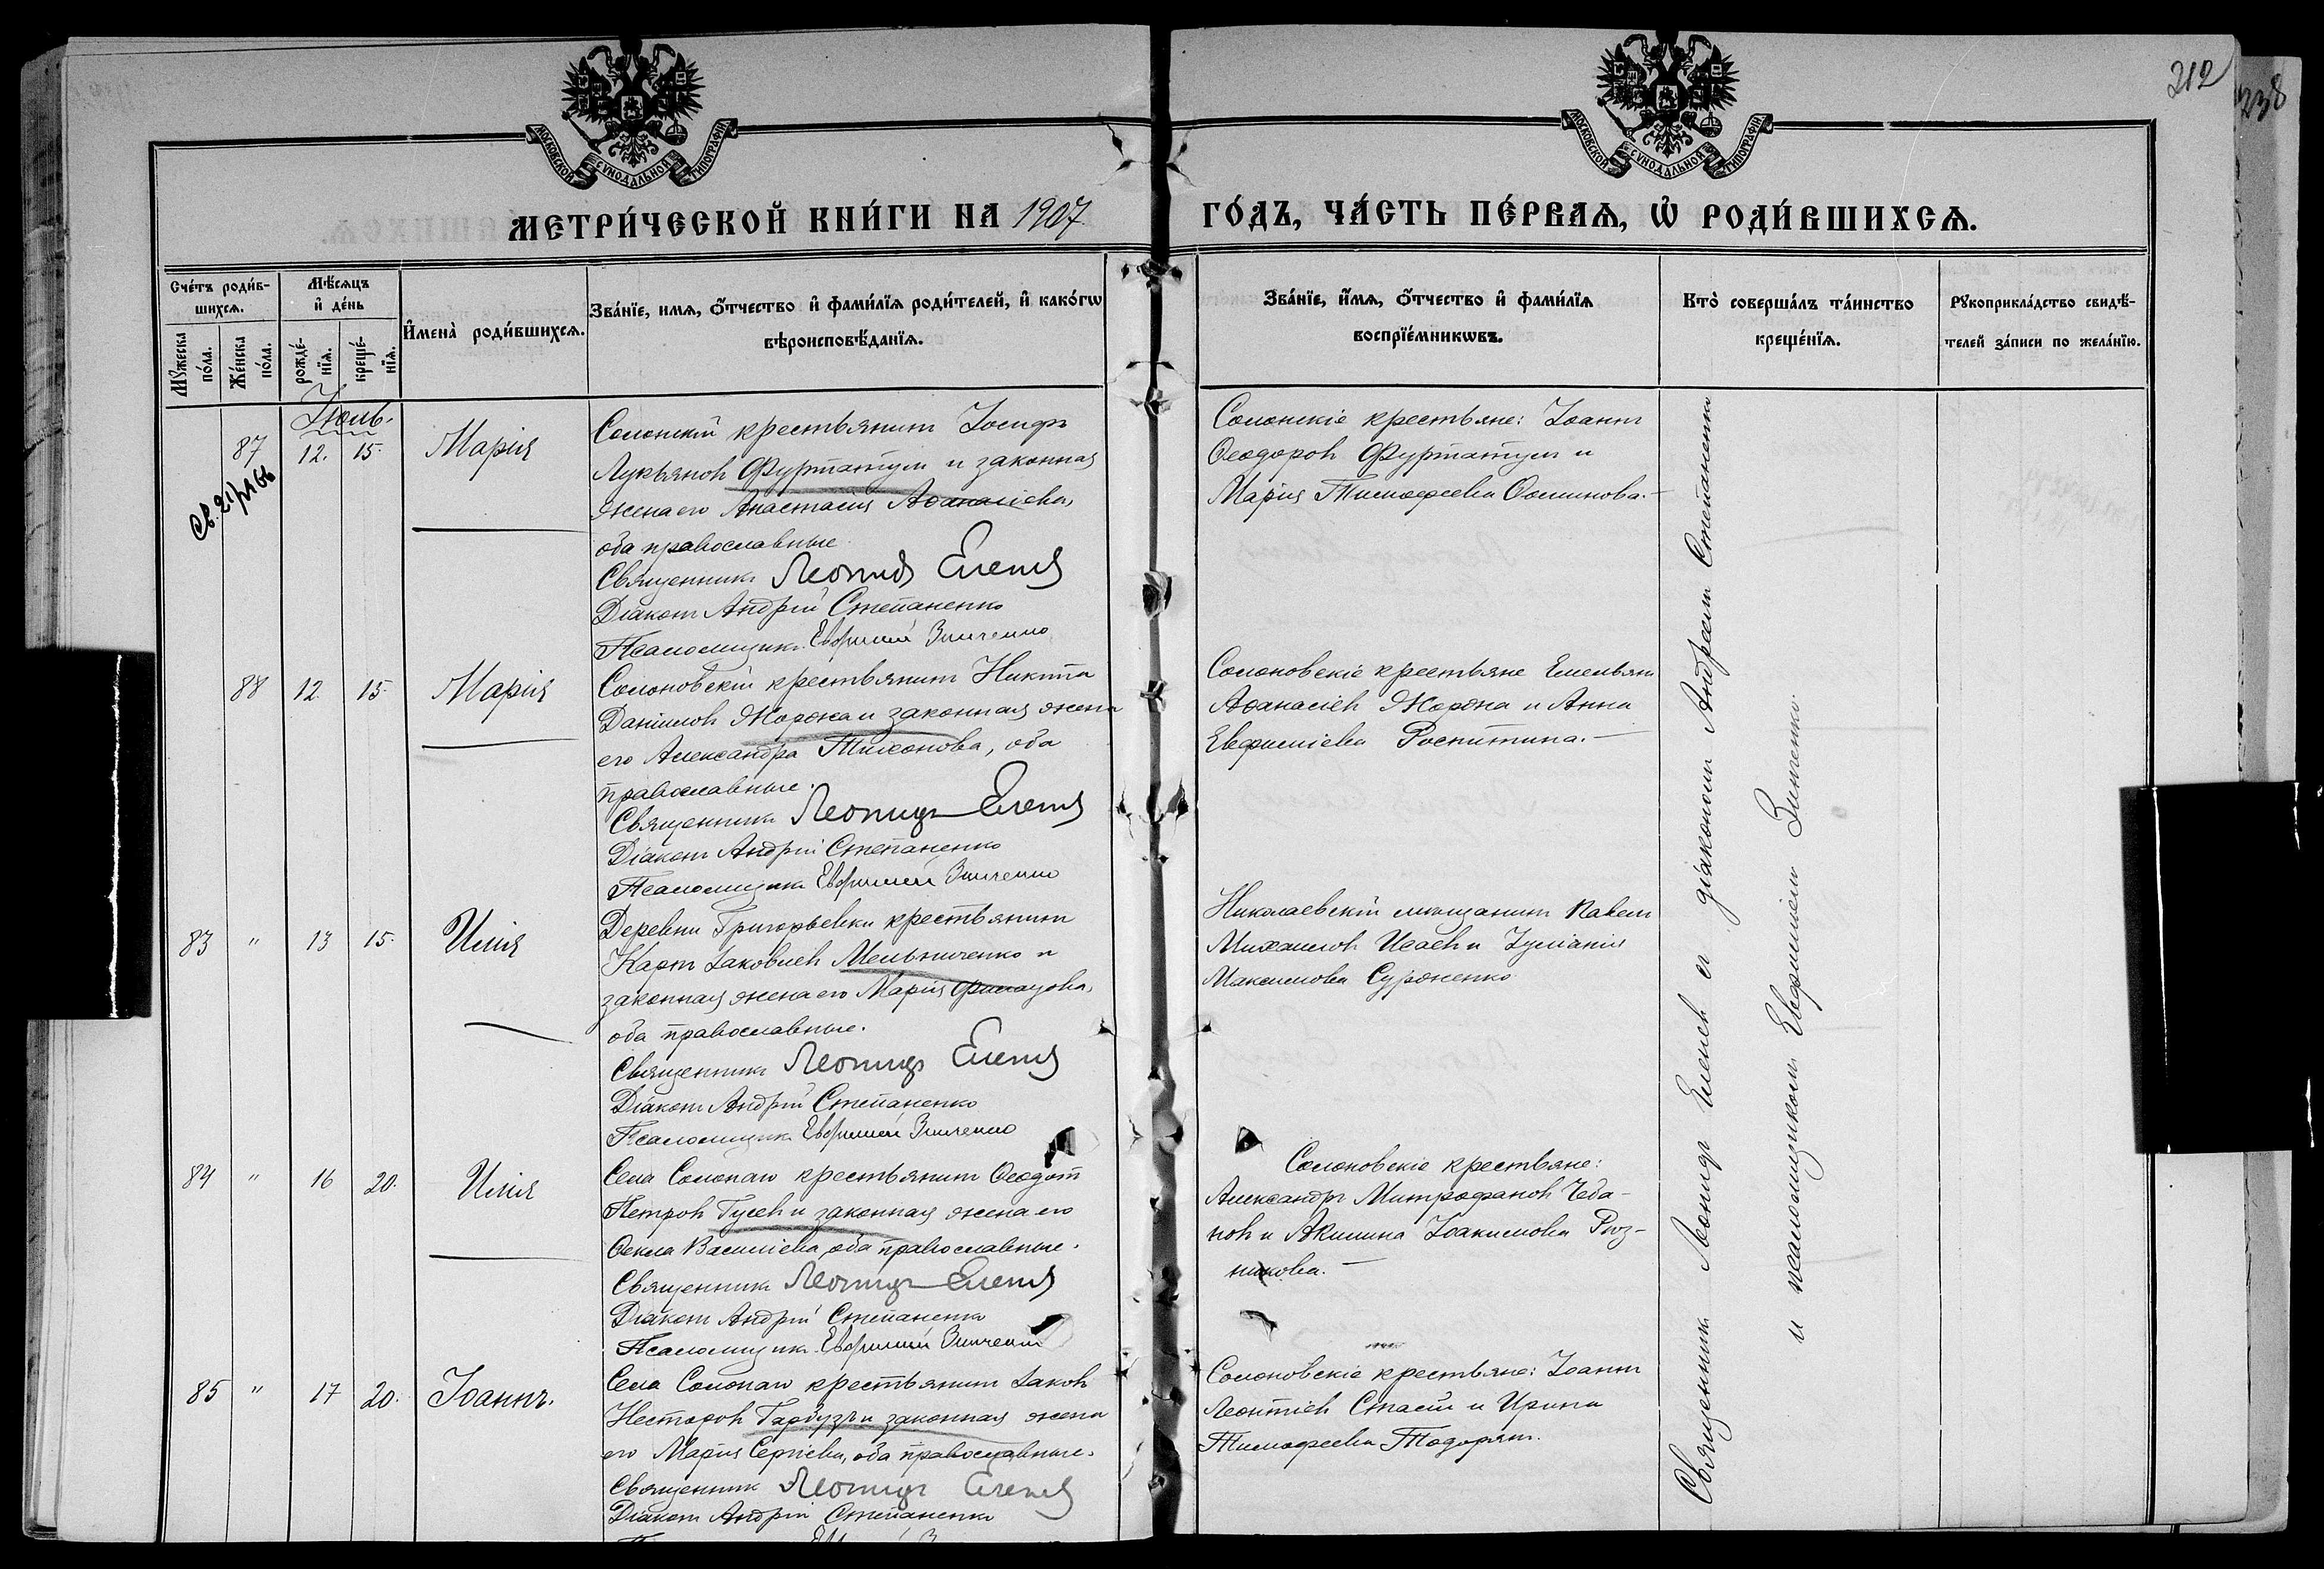 212
238
МОСКОВСКОЙ СУНОДАЛЬНОЙ ТИПОГРАФІИ
МОСКОВСКОЙ СУНОДАЛЬНОЙ ТИПОГРАФІИ
МЕТРИ́ЧЕСКОЙ КНИ́ГИ НА 1907 ГО́ДЪ, ЧА́СТЬ ПЕ́РВАЯ, Ѽ РОДИ́ВШИХСЯ.
Сче́тъ роди́в-
шихся.
Мꙋ́жеска по́ла.
Же́нска по́ла.
Мѣ́сяцъ
и де́нь
рожде́-
нїя.
креще́-
нїя.
Имена̀ роди́вшихся.
Зва́нїе, имя, ѻ́тчество и фами́лїя роди́телей, и како́гѡ
вѣроисповѣ́данїя.
Зва́нїе, и́мя, ѻ́тчество и фами́лїя
воспрїе́мникѡвъ.
Кто̀ соверша́лъ та́инство
креще́нїя.
Рꙋкоприкла́дство свидѣ́-
телей за́писи по жела́нїю.
Іюль.
87 12. 15. Марія
Св. 21/
Солонскій крестьянинъ Іосифъ
Лукьяновъ Фуртатулъ и законная
жена его Анастасія Аѳанасіева,
оба православные
Священникъ Леонидъ Еленевъ
Діаконъ Андрій Степаненко
Псаломщикъ Евфимій Зинченко
Солонскіе крестьяне: Іоаннъ
Ѳеодоровъ Фуртатулъ и
Марія Тимоѳеева Осминова.–
88 12 15. Марія
Солоновскій крестьянинъ Никита
Даніиловъ Моржа и законная жена
его Александра Тихонова, оба
православные.
Священникъ Леонидъ Еленевъ
Діаконъ Андрій Степаненко
Псаломщикъ Евфимій Зинченко
Солоновскіе крестьяне Емельянъ
Аѳанасіевъ Моржа и Анна
Евфиміева Роспитина.–
83 " 13 15. Илія
Деревни Григорьевки крестьянинъ
Карпъ Іаковлевъ Мельниченко и
законная жена его Марія
оба православные.
Священникъ Леонидъ Еленевъ
Діаконъ Андрій Степаненко
Псаломщикъ Евфимій Зинченко
Николаевскій мѣщанинъ Павелъ
Михаиловъ Исаевъ и Іуліанія
Максимова Сурженко
84 " 16 20. Илія
Села Солонаго крестьянинъ Ѳеодотъ
Петровъ Гусевъ и законная жена его
Ѳекла Василіева, оба православные.
Священникъ Леонидъ Еленевъ
Діаконъ Андрій Степаненко
Псаломщикъ Евфимій Зинченко
Солоновскіе крестьяне:
Александръ Митрофановъ Чеба-
новъ и Акилина Іоакимова Рѣз-
никова.–
85 " 17 20. Іоаннъ.
Села Солонаго крестьянинъ Іаковъ
Несторовъ Гарбузъ и законная жена
его Марія Сергіева, оба православные.
Священникъ Леонидъ Еленевъ
Діаконъ Андрій Степаненко
Солоновскіе крестьяне: Іоаннъ
Леонтіевъ Стасій и Ирина
Тимоѳеева Тодорянъ.
Священникъ Леонидъ Еленевъ съ діакономъ Андреемъ Степаненко
и псаломщикомъ Евфиміемъ Зинченко.